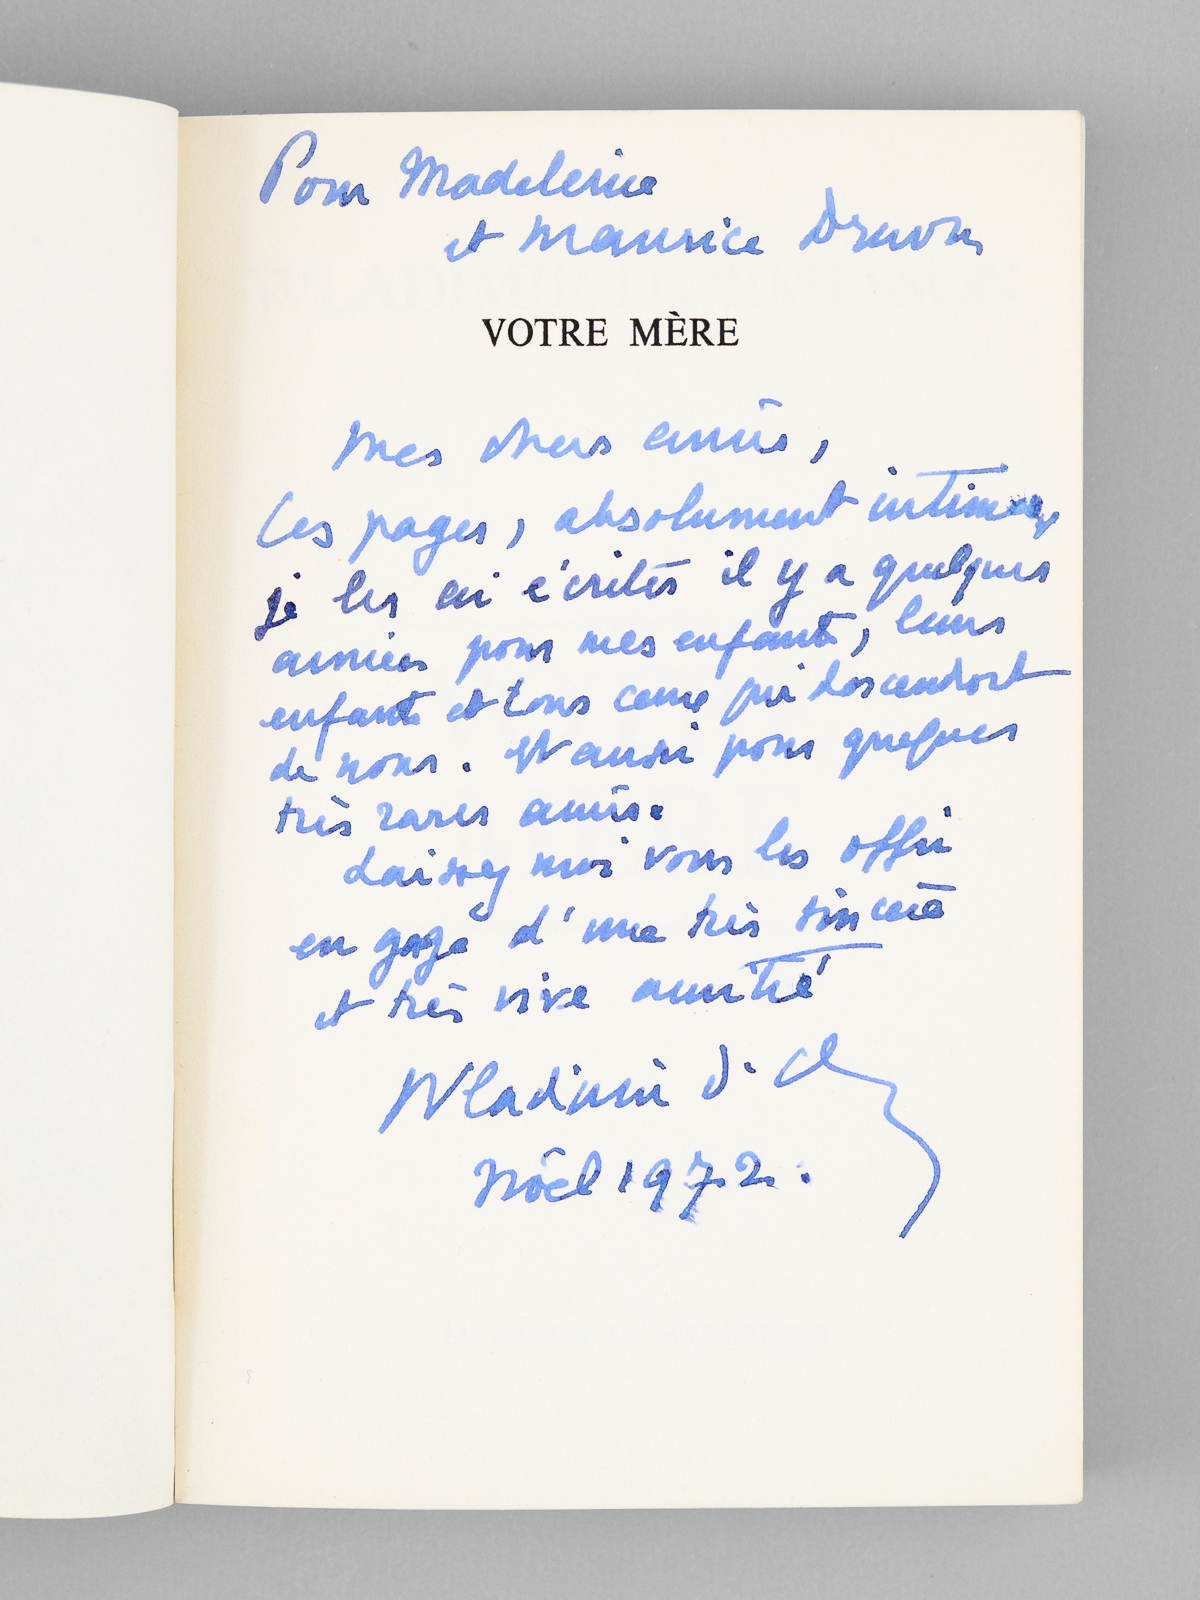 Pour Madeleine
et Maurice Druon
VOTRE MÈRE
Mes chers amis,
Ces pages, absolument intimes,
je les ai écrites il y a quelques
années pour mes enfants, leurs
enfants et tous ceux qui descendront
de nous. Et aussi pour quelques
très rares amis.
Laissez moi vous les offrir
en gage d'une très sincère
et très vive amitié
Wladimir d'O
Noël 1972.